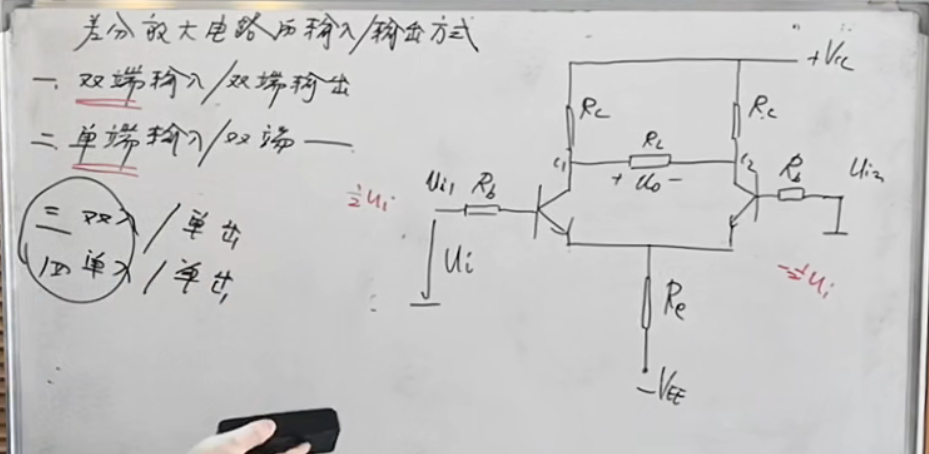 差分放大电路的输入/输出方式
一. 双端输入/双端输出
二. 单端输入/双端 ——
三 双入/单出
四 单入/单出
+Vcc
Rc
Rc
RL
C1
C2
+ Uo -
Ui1
Rb
Rb
Ui2
½Ui
Ui
-½Ui
Re
-VEE